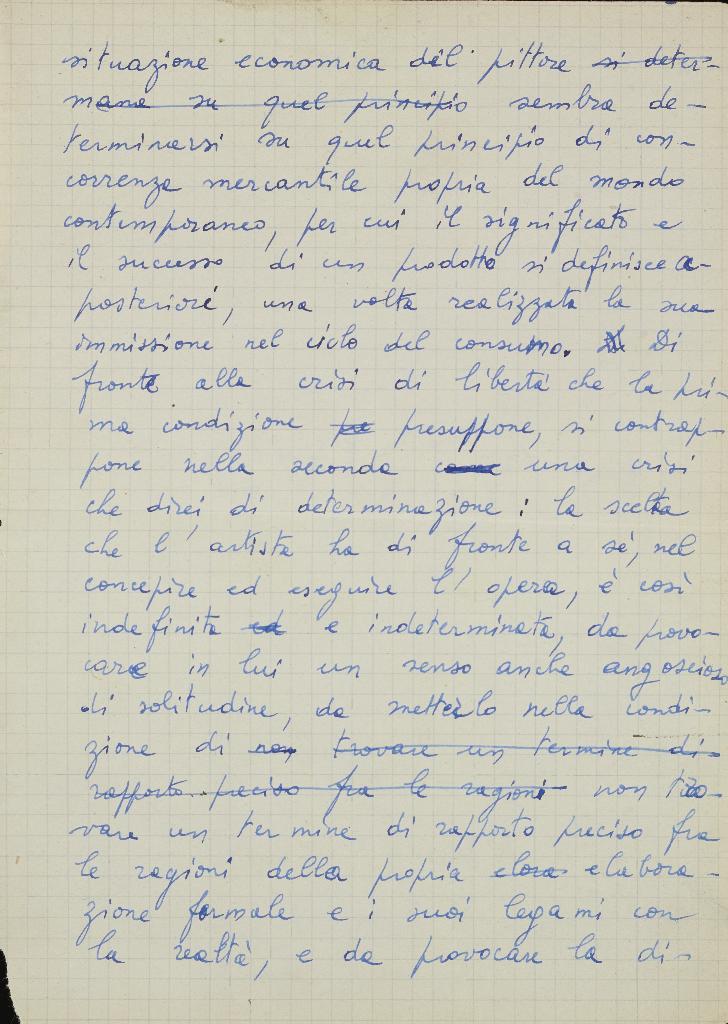 situazione economica del pittore si deter-
mana su quel principio sembra de-
terminarsi su quel principio di con-
correnza mercantile propria del mondo
contemporaneo, per cui il significato e
il successo di un prodotto si definisce a-
posteriori, una volta realizzata la sua
immissione nel ciclo del consumo. Di
fronte alla crisi di libertà che la pri-
ma condizione pre presuppone, si contrap-
pone nella seconda come una crisi
che direi di determinazione: la scelta
che l'artista ha di fronte a sé, nel
concepire ed eseguire l'opera, è così
indefinita ed e indeterminata, da provo-
care in lui un senso anche angoscioso
di solitudine, da metterlo nella condi-
zione di non trovare un termine di
rapporto preciso fra le ragioni non tro-
vare un termine di rapporto preciso fra
le ragioni della propria elora elabora-
zione formale e i suoi legami con
la realtà, e da provocare la di-